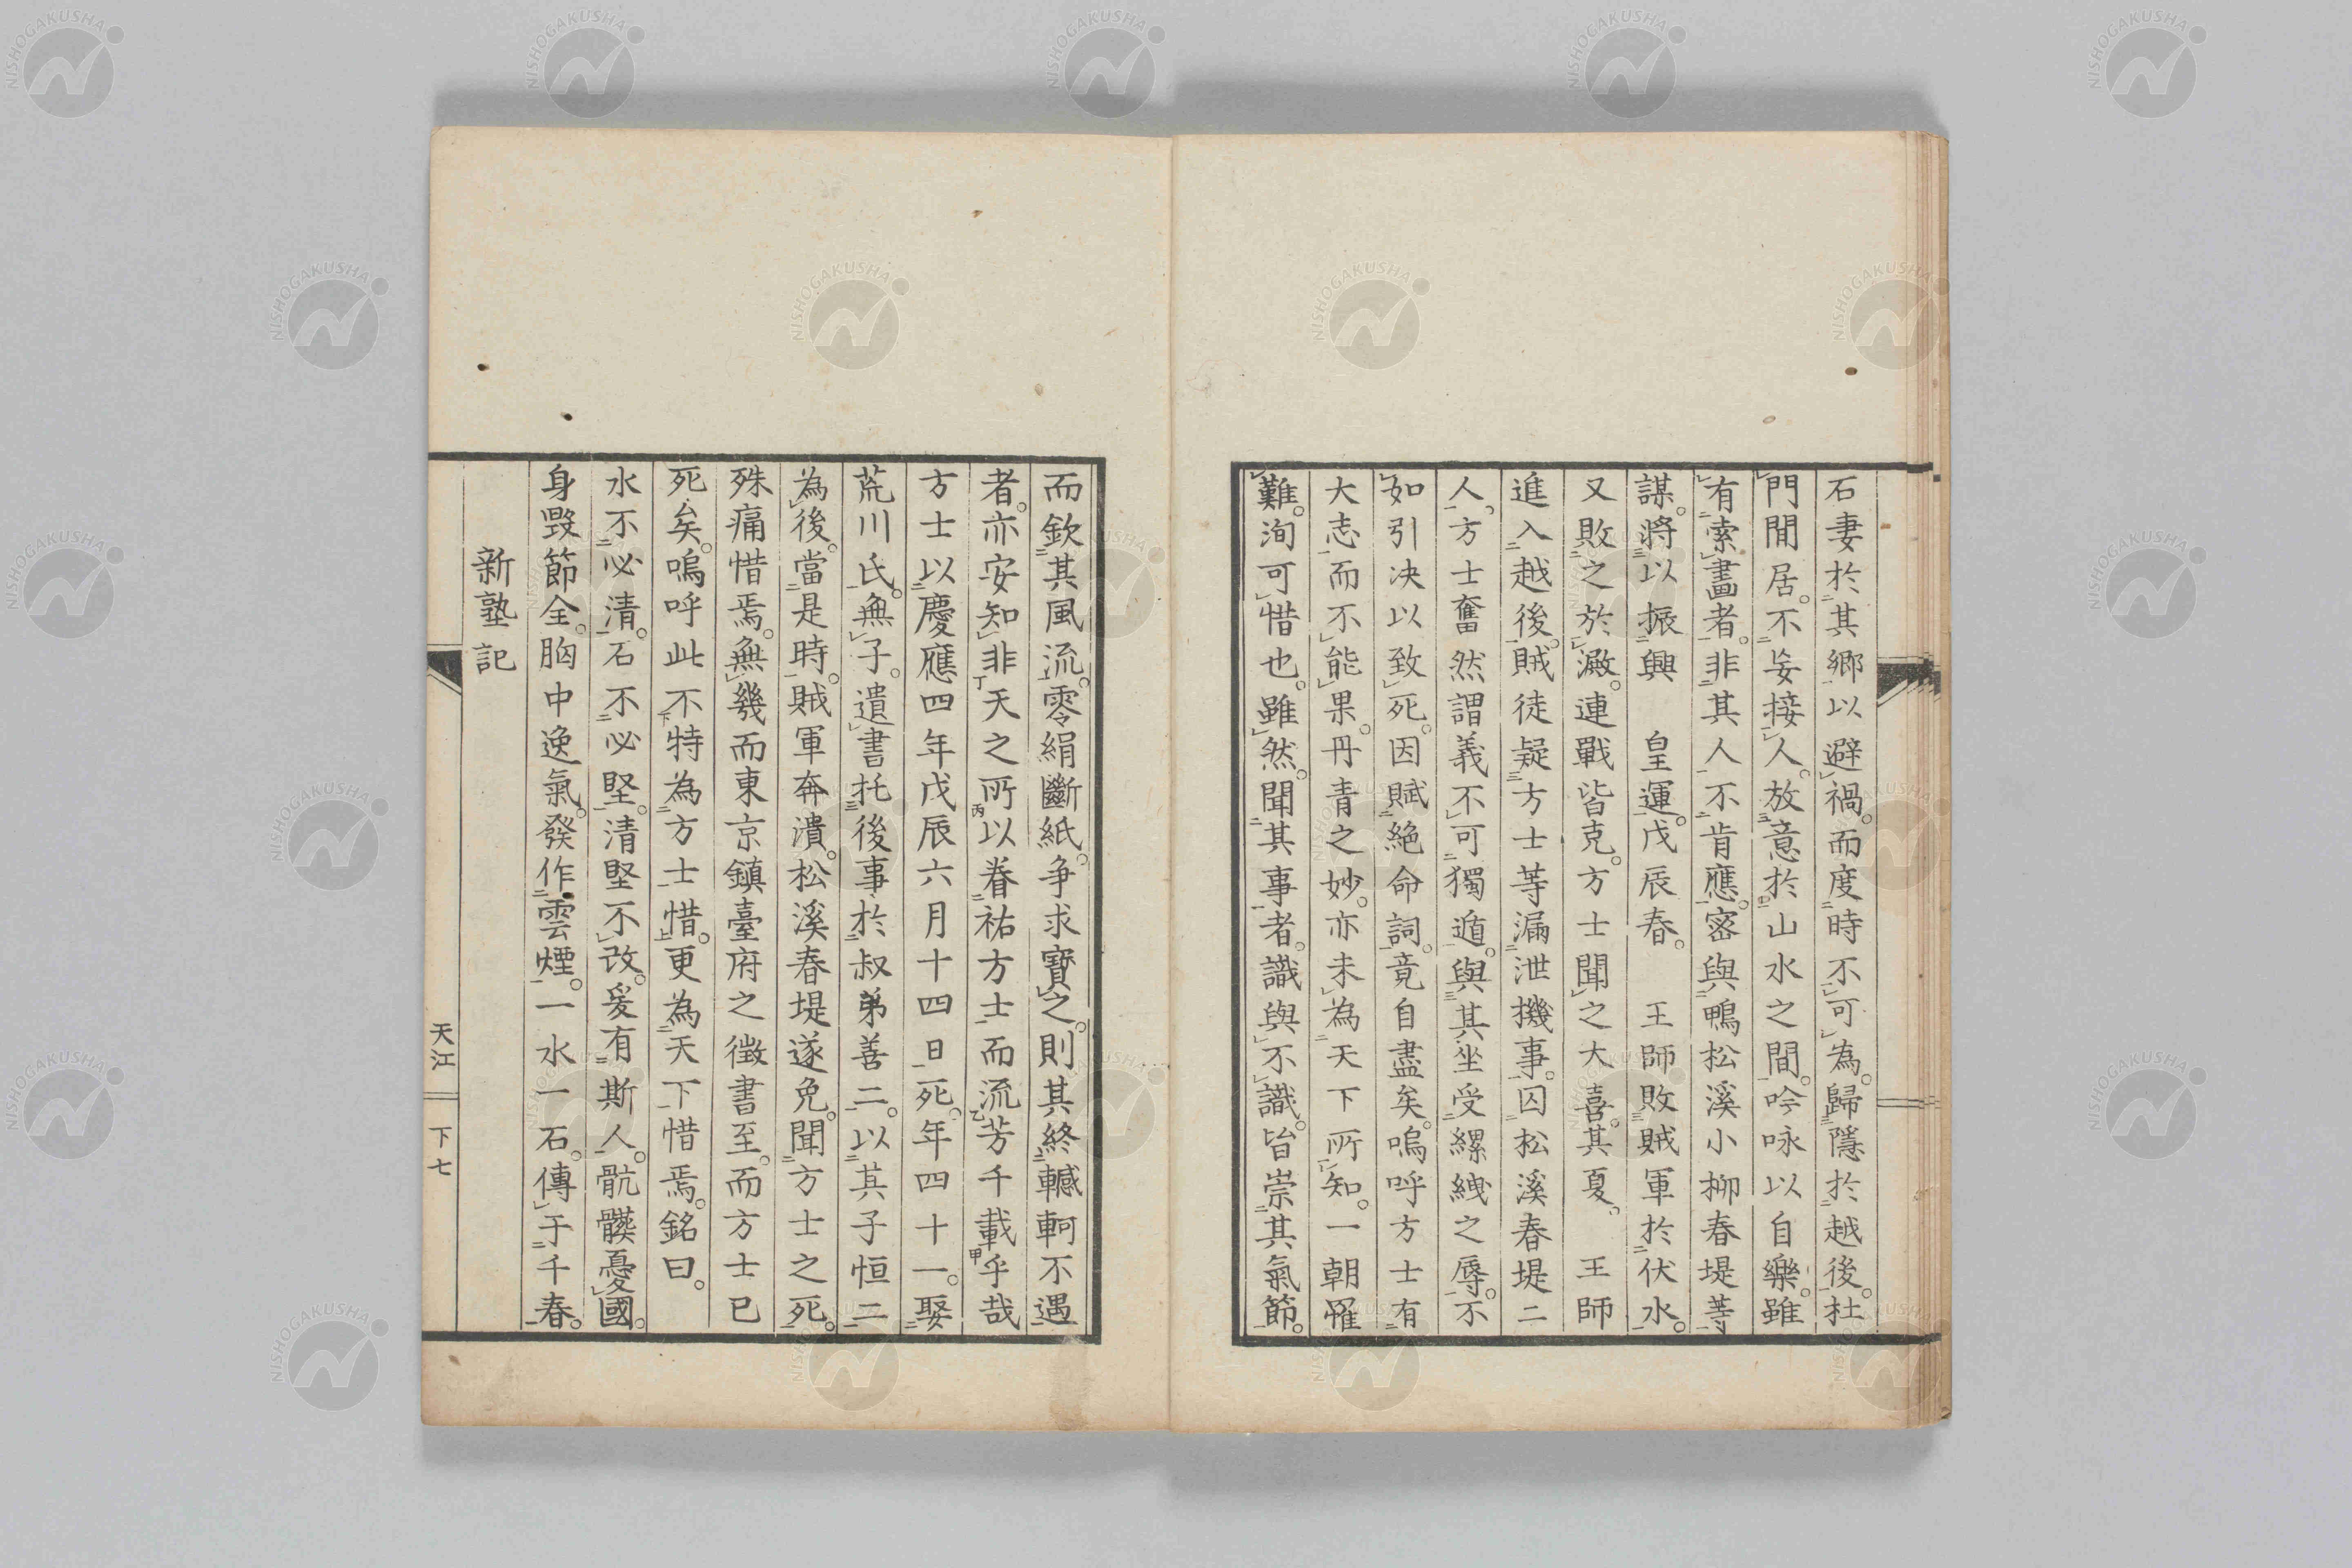 石妻於其鄉以避禍。而度時不可為。歸隱於越後。杜
門閒居。不妄接人。放意於山水之間。吟咏以自樂。雖
有索畫者。非其人不肯應。密與鴨松溪小柳春堤等
謀。將以振興　皇運。戊辰春。　王師敗賊軍於伏水。
又敗之於澱。連戰皆克。方士聞之大喜。其夏。　王師
進入越後。賊徒疑方士等漏泄機事。囚松溪春堤二
人。方士奮然謂義不可獨遁。與其坐受縲絏之辱。不
如引決以致死。因賦絕命詞。竟自盡矣。嗚呼方士有
大志而不能果。丹青之妙。亦未為天下所知。一朝罹
難。洵可惜也。雖然。聞其事者。識與不識。皆崇其氣節。
而欽其風流。零絹斷紙。爭求寶之。則其終轗軻不遇
者。亦安知非天之所以眷祐方士而流芳千載乎哉
方士以慶應四年戊辰六月十四日死。年四十一。娶
荒川氏。無子。遺書托後事於叔弟善二。以其子恒二
為後。當是時。賊軍奔潰。松溪春堤遂免。聞方士之死。
殊痛惜焉。無幾而東京鎮臺府之徵書至。而方士已
死矣。嗚呼此不特為方士惜。更為天下惜焉。銘曰。
水不必清。石不必堅。清堅不改。爰有斯人。骯髒憂國。
身毀節全。胸中逸氣。發作雲煙。一水一石。傳于千春。
新塾記
天江　下七
NISHOGAKUSHA